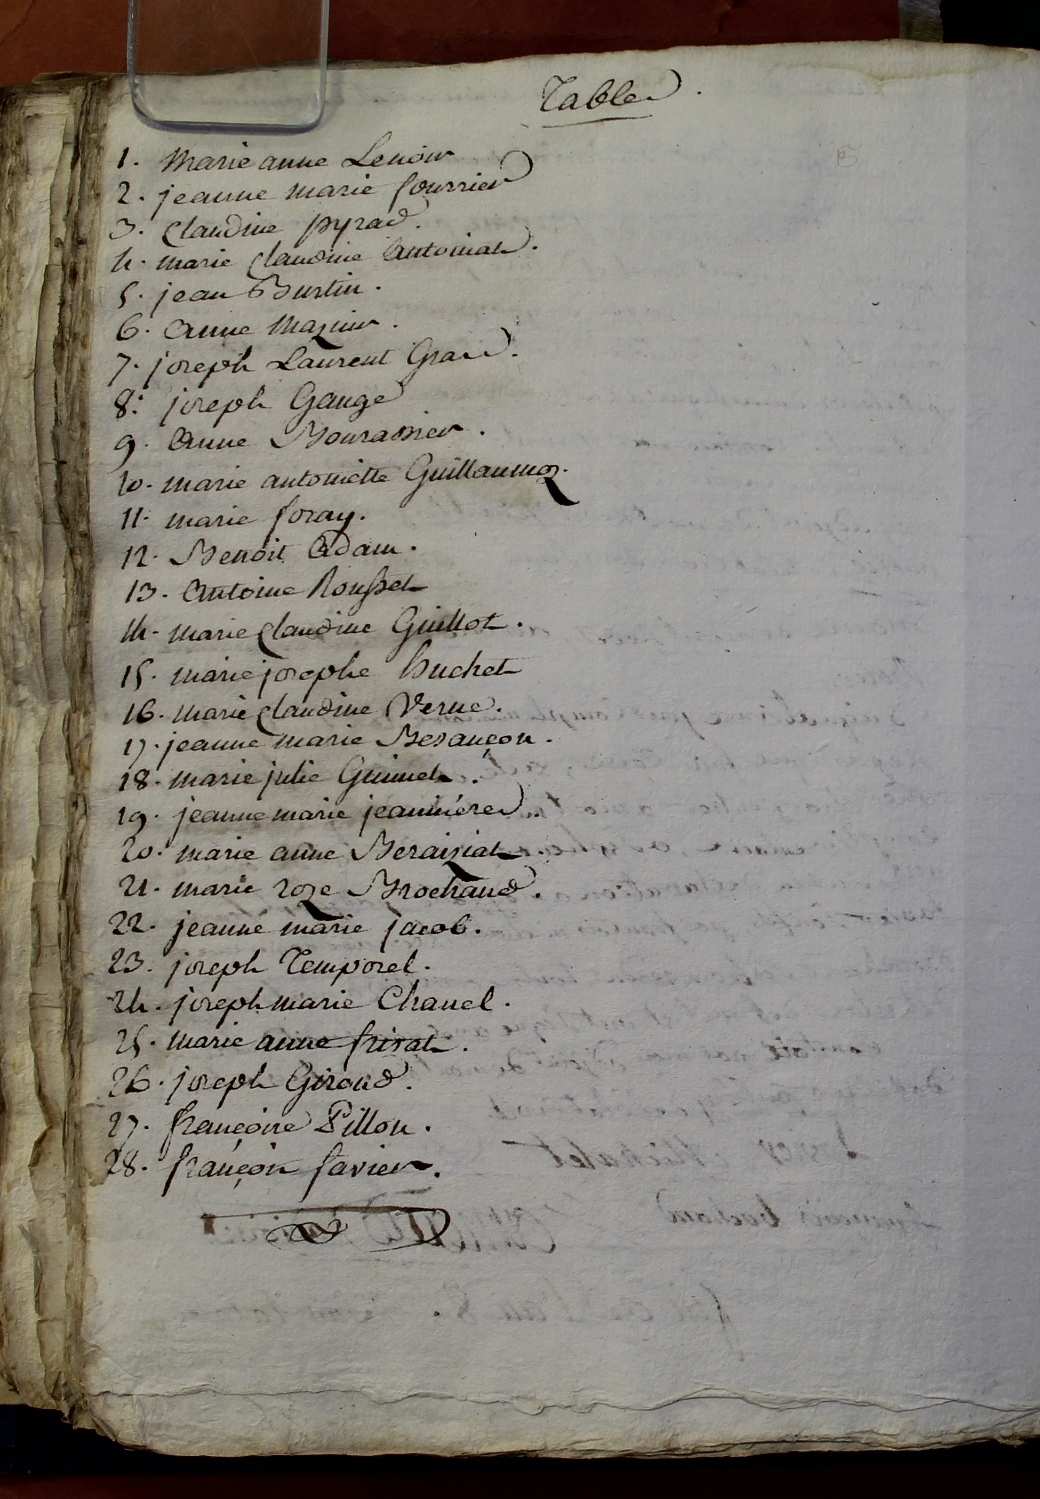 Table
1. Marie anne Lenoir
2. jeanne marie fourrier
3. claudine pyrad.
4. marie claudine Antoinat.
5. jean Burtin.
6. Anne Mazuir.
7. joseph Laurent Grand.
8. joseph Gauge
9. Anne Bourassier.
10. marie antoinette Guillaumoz.
11. marie foray.
12. Benoit Adam.
13. Antoine Rousset
14. marie claudine Guillot.
15. marie josephe huchet
16. marie claudine Verne.
17. jeanne marie Besançon.
18. marie julie Guimet.
19. jeanne marie jeannière.
20. marie anne Beraiziat.
21. marie roze Brochand.
22. jeanne marie jacob.
23. joseph Temporel.
24. joseph marie Chanel.
25. marie anne frirat.
26. joseph Giroud.
27. françoise Pillon.
28. françois favier.